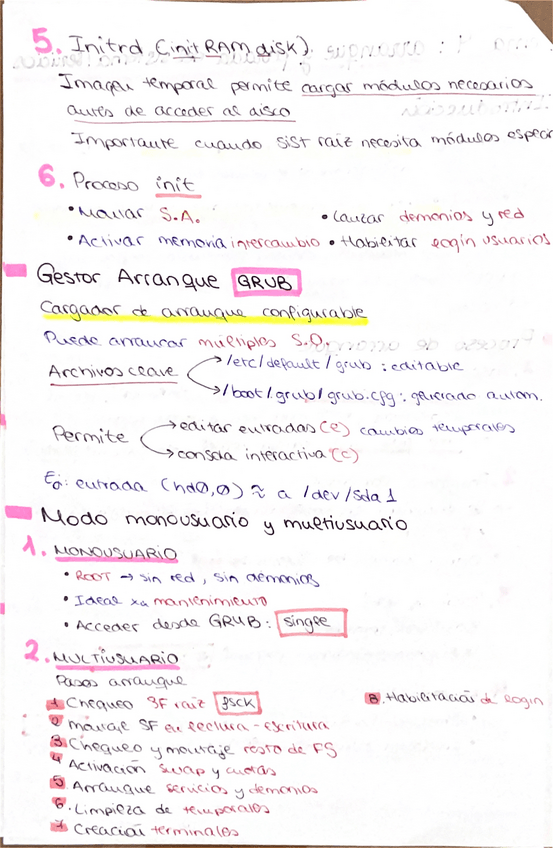 5. Initrd (init RAM disk)
Imagen temporal permite cargar módulos necesarios
antes de acceder al disco
Importante cuando sist raíz necesita módulos especi
6. Proceso init
• Montar S.A.
• Lanzar demonios y red
• Activar memoria intercambio
• Habilitar login usuarios
Gestor Arranque GRUB
Cargador de arranque configurable
Puede arrancar múltiples S.O.
Archivos clave
→ /etc/default/grub : editable
→ /boot/grub/grub.cfg : generado autom.
Permite
→ editar entradas (e) cambios temporales
→ consola interactiva (c)
Ej: entrada (hd0,0) ≈ a /dev/sda1
Modo monousuario y multiusuario
1. MONOUSUARIO
• ROOT → sin red, sin demonios
• Ideal xa mantenimiento
• Acceder desde GRUB: single
2. MULTIUSUARIO
Pasos arranque
1 Chequeo SF raíz fsck
2 Montaje SF en lectura-escritura
3 Chequeo y montaje resto de FS
4 Activación swap y cuotas
5 Arranque servicios y demonios
6. Limpieza de temporales
7 Creación terminales
8. Habilitación de login